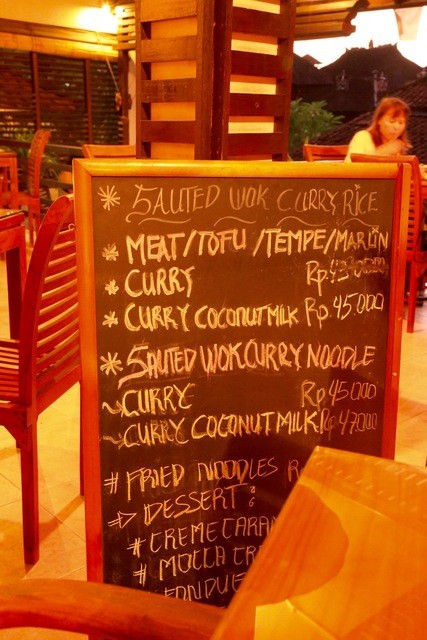 * SAUTED WOK CURRY RICE
* MEAT/TOFU/TEMPE/MARLIN
* CURRY Rp 43.000
* CURRY COCONUTMILK Rp. 45.000
* SAUTED WOK CURRY NOODLE
~ CURRY Rp 45000
~ CURRY COCONUT MILK Rp 47.000
# FRIED NOODLES R
=> DESSERT:
# CREME CARAM
# MOCCA CR
FONDUE